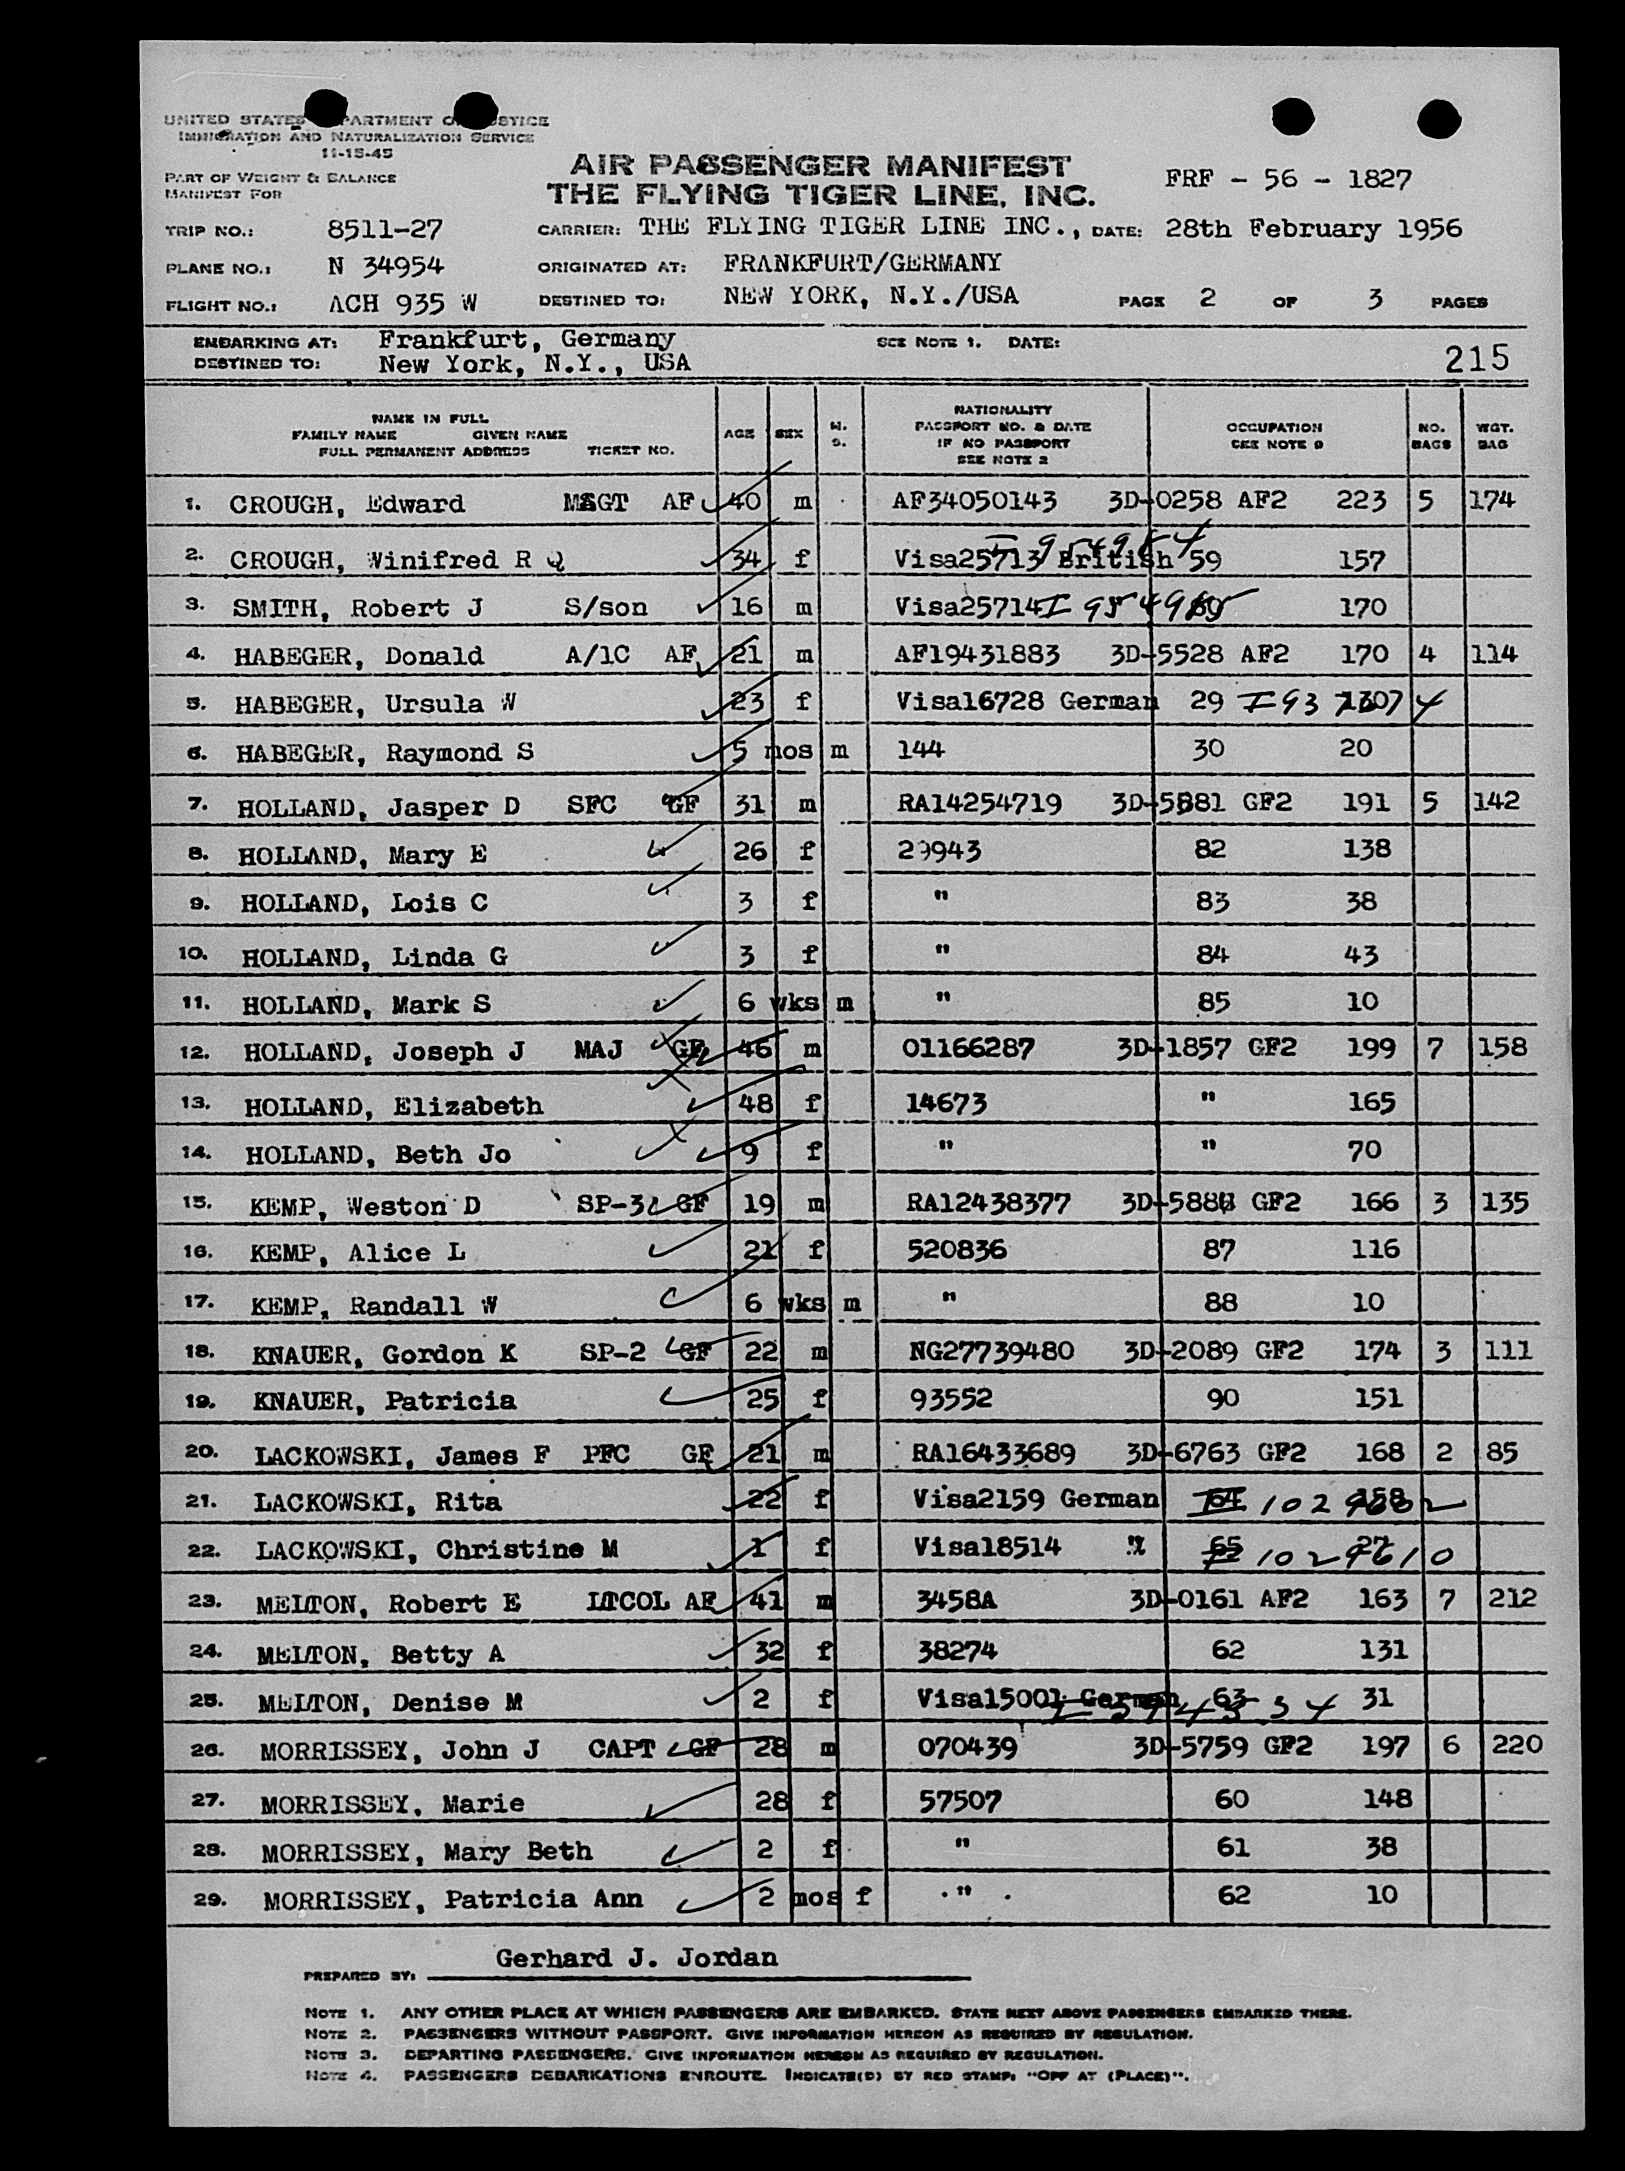 UNITED STATES DEPARTMENT OF JUSTICE
IMMIGRATION AND NATURALIZATION SERVICE
11-15-45
PART OF WEIGHT & BALANCE
MANIFEST FOR
AIR PASSENGER MANIFEST
THE FLYING TIGER LINE, INC.
FRF - 56 - 1827
TRIP NO.: 8511-27 CARRIER: THE FLYING TIGER LINE INC., DATE: 28th February 1956
PLANE NO.: N 34954 ORIGINATED AT: FRANKFURT/GERMANY
FLIGHT NO.: ACH 935 W DESTINED TO: NEW YORK, N.Y./USA PAGE 2 OF 3 PAGES
EMBARKING AT: Frankfurt, Germany SEE NOTE 1. DATE:
DESTINED TO: New York, N.Y., USA 215
NAME IN FULL
FAMILY NAME GIVEN NAME
FULL PERMANENT ADDRESS TICKET NO.
AGE SEX
NATIONALITY
PASSPORT NO. & DATE
IF NO PASSPORT
SEE NOTE 2
OCCUPATION
SEE NOTE 3
NO.
BAGS
WGT.
BAG
1. CROUGH, Edward MSGT AF 40 m AF34050143 3D-0258 AF2 223 5 174
2. CROUGH, Winifred R Q 34 f Visa25713 British 59 157
3. SMITH, Robert J S/son 16 m Visa25714 I 954965 170
4. HABEGER, Donald A/1C AF 21 m AF19431883 3D-5528 AF2 170 4 114
5. HABEGER, Ursula W 23 f Visa16728 German 29
6. HABEGER, Raymond S 5 mos m 144 30 20
7. HOLLAND, Jasper D SFC GF 31 m RA14254719 3D-5881 GF2 191 5 142
8. HOLLAND, Mary E 26 f 29943 82 138
9. HOLLAND, Lois C 3 f " 83 38
10. HOLLAND, Linda G 3 f " 84 43
11. HOLLAND, Mark S 6 wks m " 85 10
12. HOLLAND, Joseph J MAJ GF 46 m 01166287 3D-1857 GF2 199 7 158
13. HOLLAND, Elizabeth 48 f 14673 " 165
14. HOLLAND, Beth Jo 9 f " " 70
15. KEMP, Weston D SP-3 GF 19 m RA12438377 3D-5886 GF2 166 3 135
16. KEMP, Alice L 21 f 520836 87 116
17. KEMP, Randall W 6 wks m " 88 10
18. KNAUER, Gordon K SP-2 GF 22 m NG27739480 3D-2089 GF2 174 3 111
19. KNAUER, Patricia 25 f 93552 90 151
20. LACKOWSKI, James F PFC GF 21 m RA16433689 3D-6763 GF2 168 2 85
21. LACKOWSKI, Rita 22 f Visa2159 German 64 158
22. LACKOWSKI, Christine M 1 f Visa18514 " 65 27
23. MELTON, Robert E LTCOL AF 41 m 3458A 3D-0161 AF2 163 7 212
24. MELTON, Betty A 32 f 38274 62 131
25. MELTON, Denise M 2 f Visa15001 German 63 31
26. MORRISSEY, John J CAPT GF 28 m 070439 3D-5759 GF2 197 6 220
27. MORRISSEY, Marie 28 f 57507 60 148
28. MORRISSEY, Mary Beth 2 f " 61 38
29. MORRISSEY, Patricia Ann 2 mos f " 62 10
PREPARED BY: Gerhard J. Jordan
NOTE 1. ANY OTHER PLACE AT WHICH PASSENGERS ARE EMBARKED. STATE NEXT ABOVE PASSENGERS EMBARKED THERE.
NOTE 2. PASSENGERS WITHOUT PASSPORT. GIVE INFORMATION HEREON AS REQUIRED BY REGULATION.
NOTE 3. DEPARTING PASSENGERS. GIVE INFORMATION HEREON AS REQUIRED BY REGULATION.
NOTE 4. PASSENGERS DEBARKATIONS ENROUTE. INDICATE(D) BY RED STAMP: "OFF AT (PLACE)".